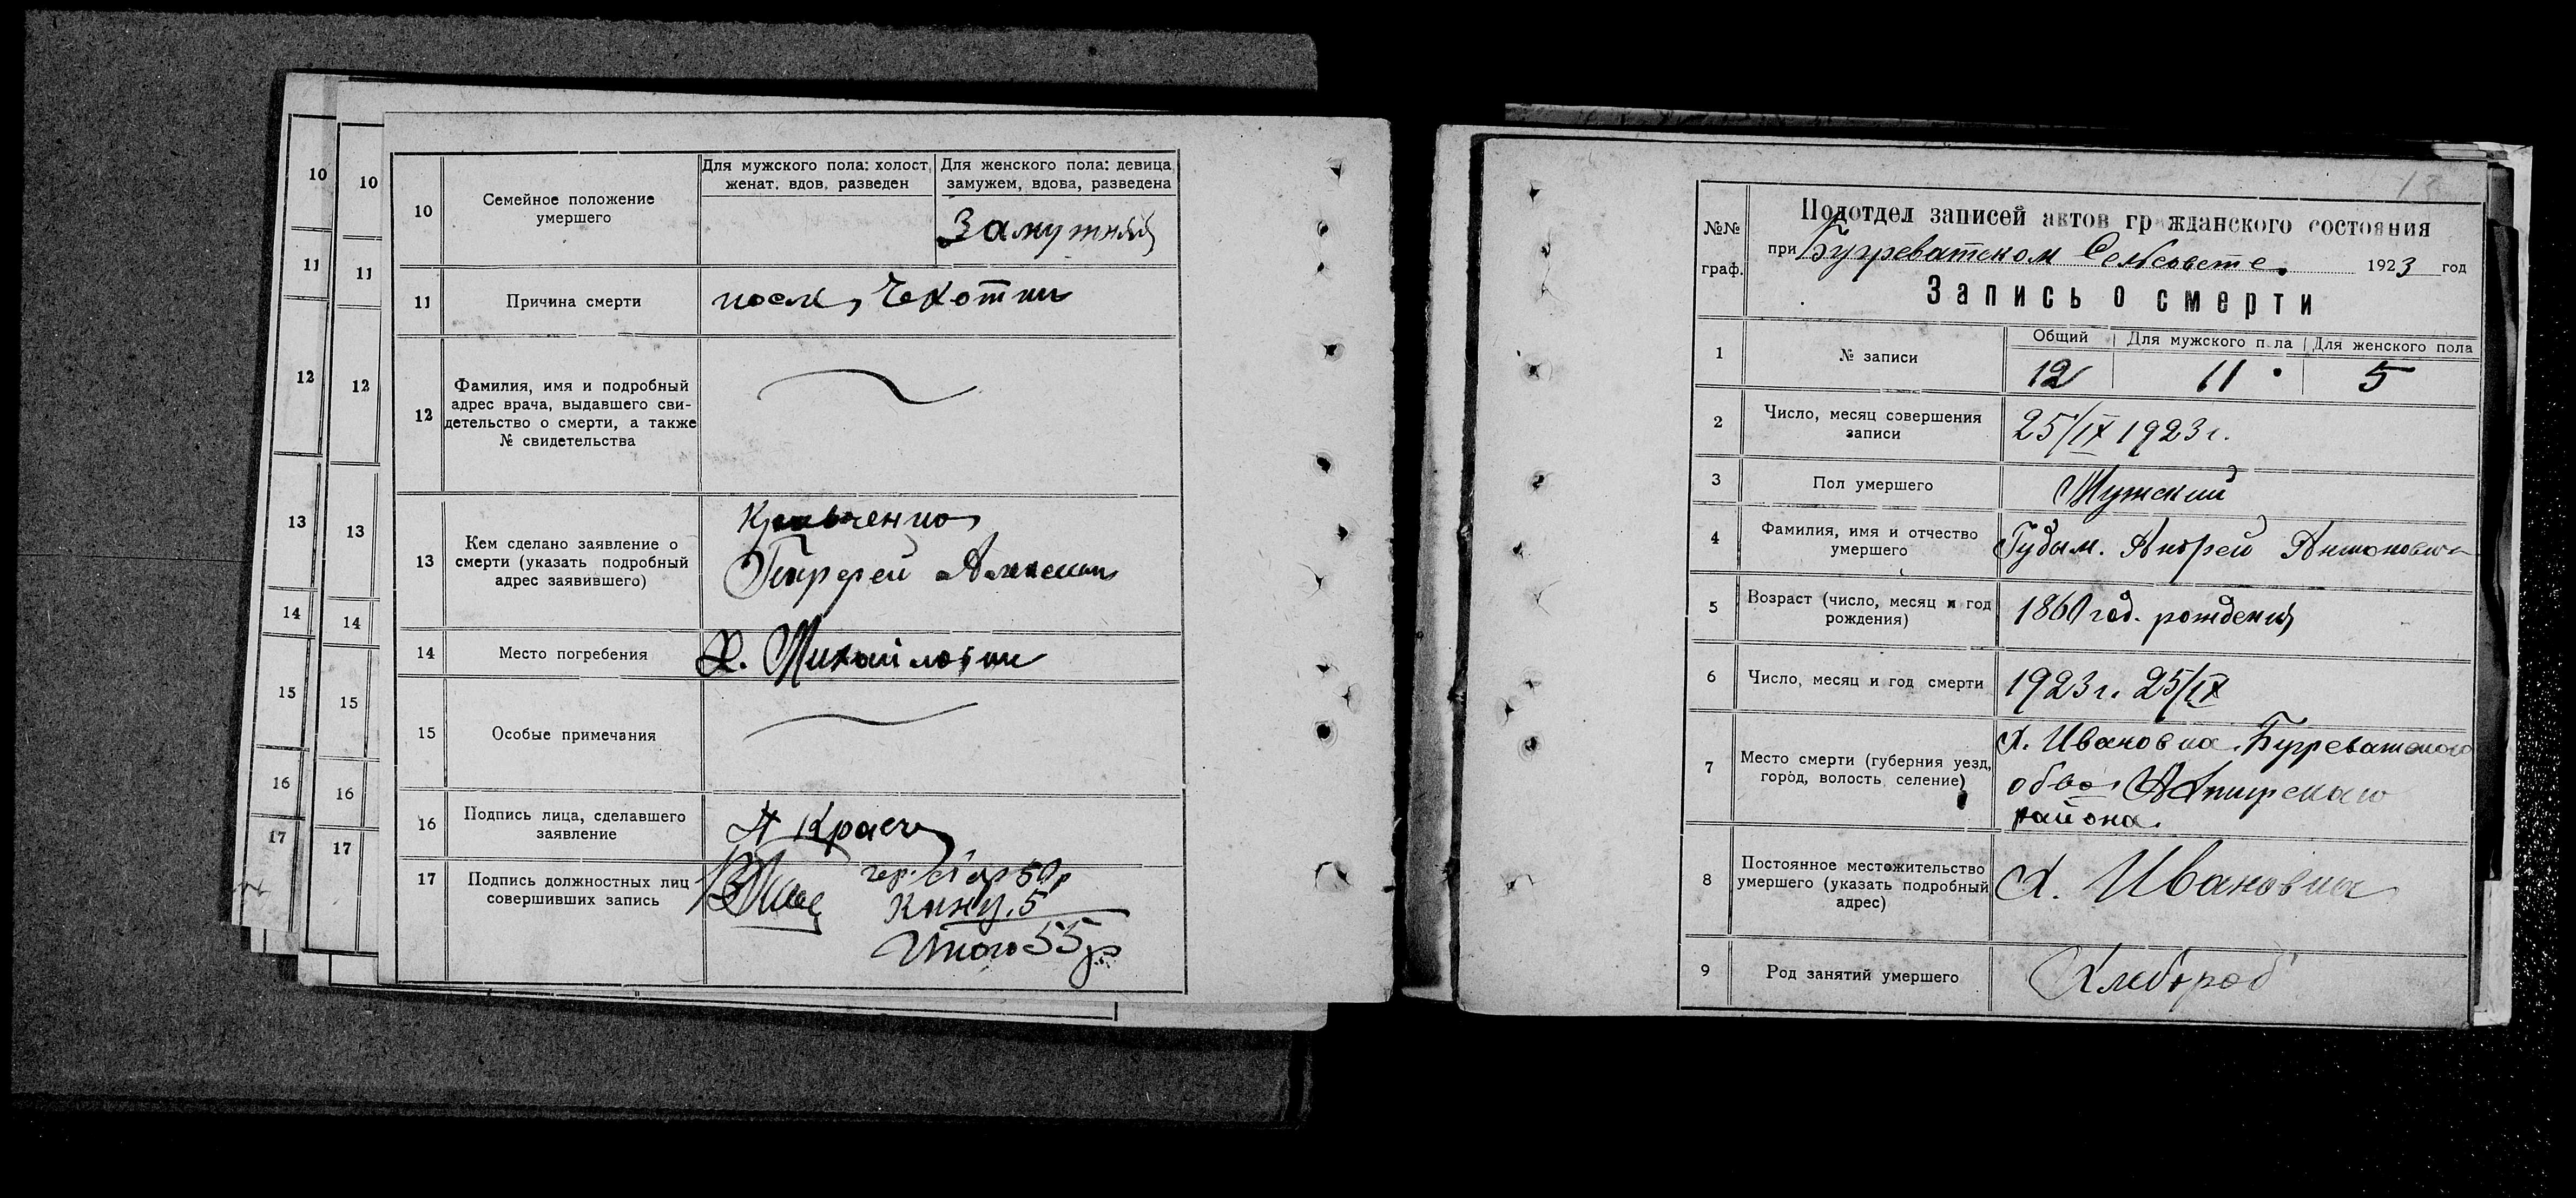 10
11
12
13
14
15
16
17
10
11
12
13
14
15
16
17
10
Семейное положение
умершего
Для мужского пола: холост,
женат, вдов, разведен
Для женского пола: девица
замужем, вдова, разведена
Замужняя
11
Причина смерти
Чехотки
12
Фамилия, имя и подробный
адрес врача, выдавшего сви-
детельство о смерти, а также
№ свидетельства
13
Кем сделано заявление о
смерти (указать подробный
адрес заявившего)
14
Место погребения
Х. Михайловки
15
Особые примечания
16
Подпись лица, сделавшего
заявление
17
Подпись должностных лиц
совершивших запись
50р
5
Итого 55р
№№
граф.
Подотдел записей актов гражданского состояния
при Бугреватском Сельсовете. 1923 год
Запись о смерти
1
№ записи
Общий
Для мужского пола
Для женского пола
12
11
5
2
Число, месяц совершения
записи
25/IX 1923 г.
3
Пол умершего
Мужский
4
Фамилия, имя и отчество
умершего
Гудым. Андрей Антонович
5
Возраст (число, месяц и год
рождения)
1860 год. рождения
6
Число, месяц и год смерти
1923 г. 25/IX
7
Место смерти (губерния уезд,
город, волость селение)
Х. Ивановка. Бугреватского
общ. Ахтирского
района.
8
Постоянное местожительство
умершего (указать подробный
адрес)
Х. Ивановка
9
Род занятий умершего
Хлебороб